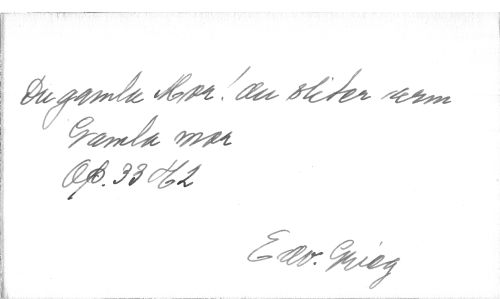 Du gamla Mor! du sliter arm
Gamla mor
Op. 33 H2
Edv. Grieg